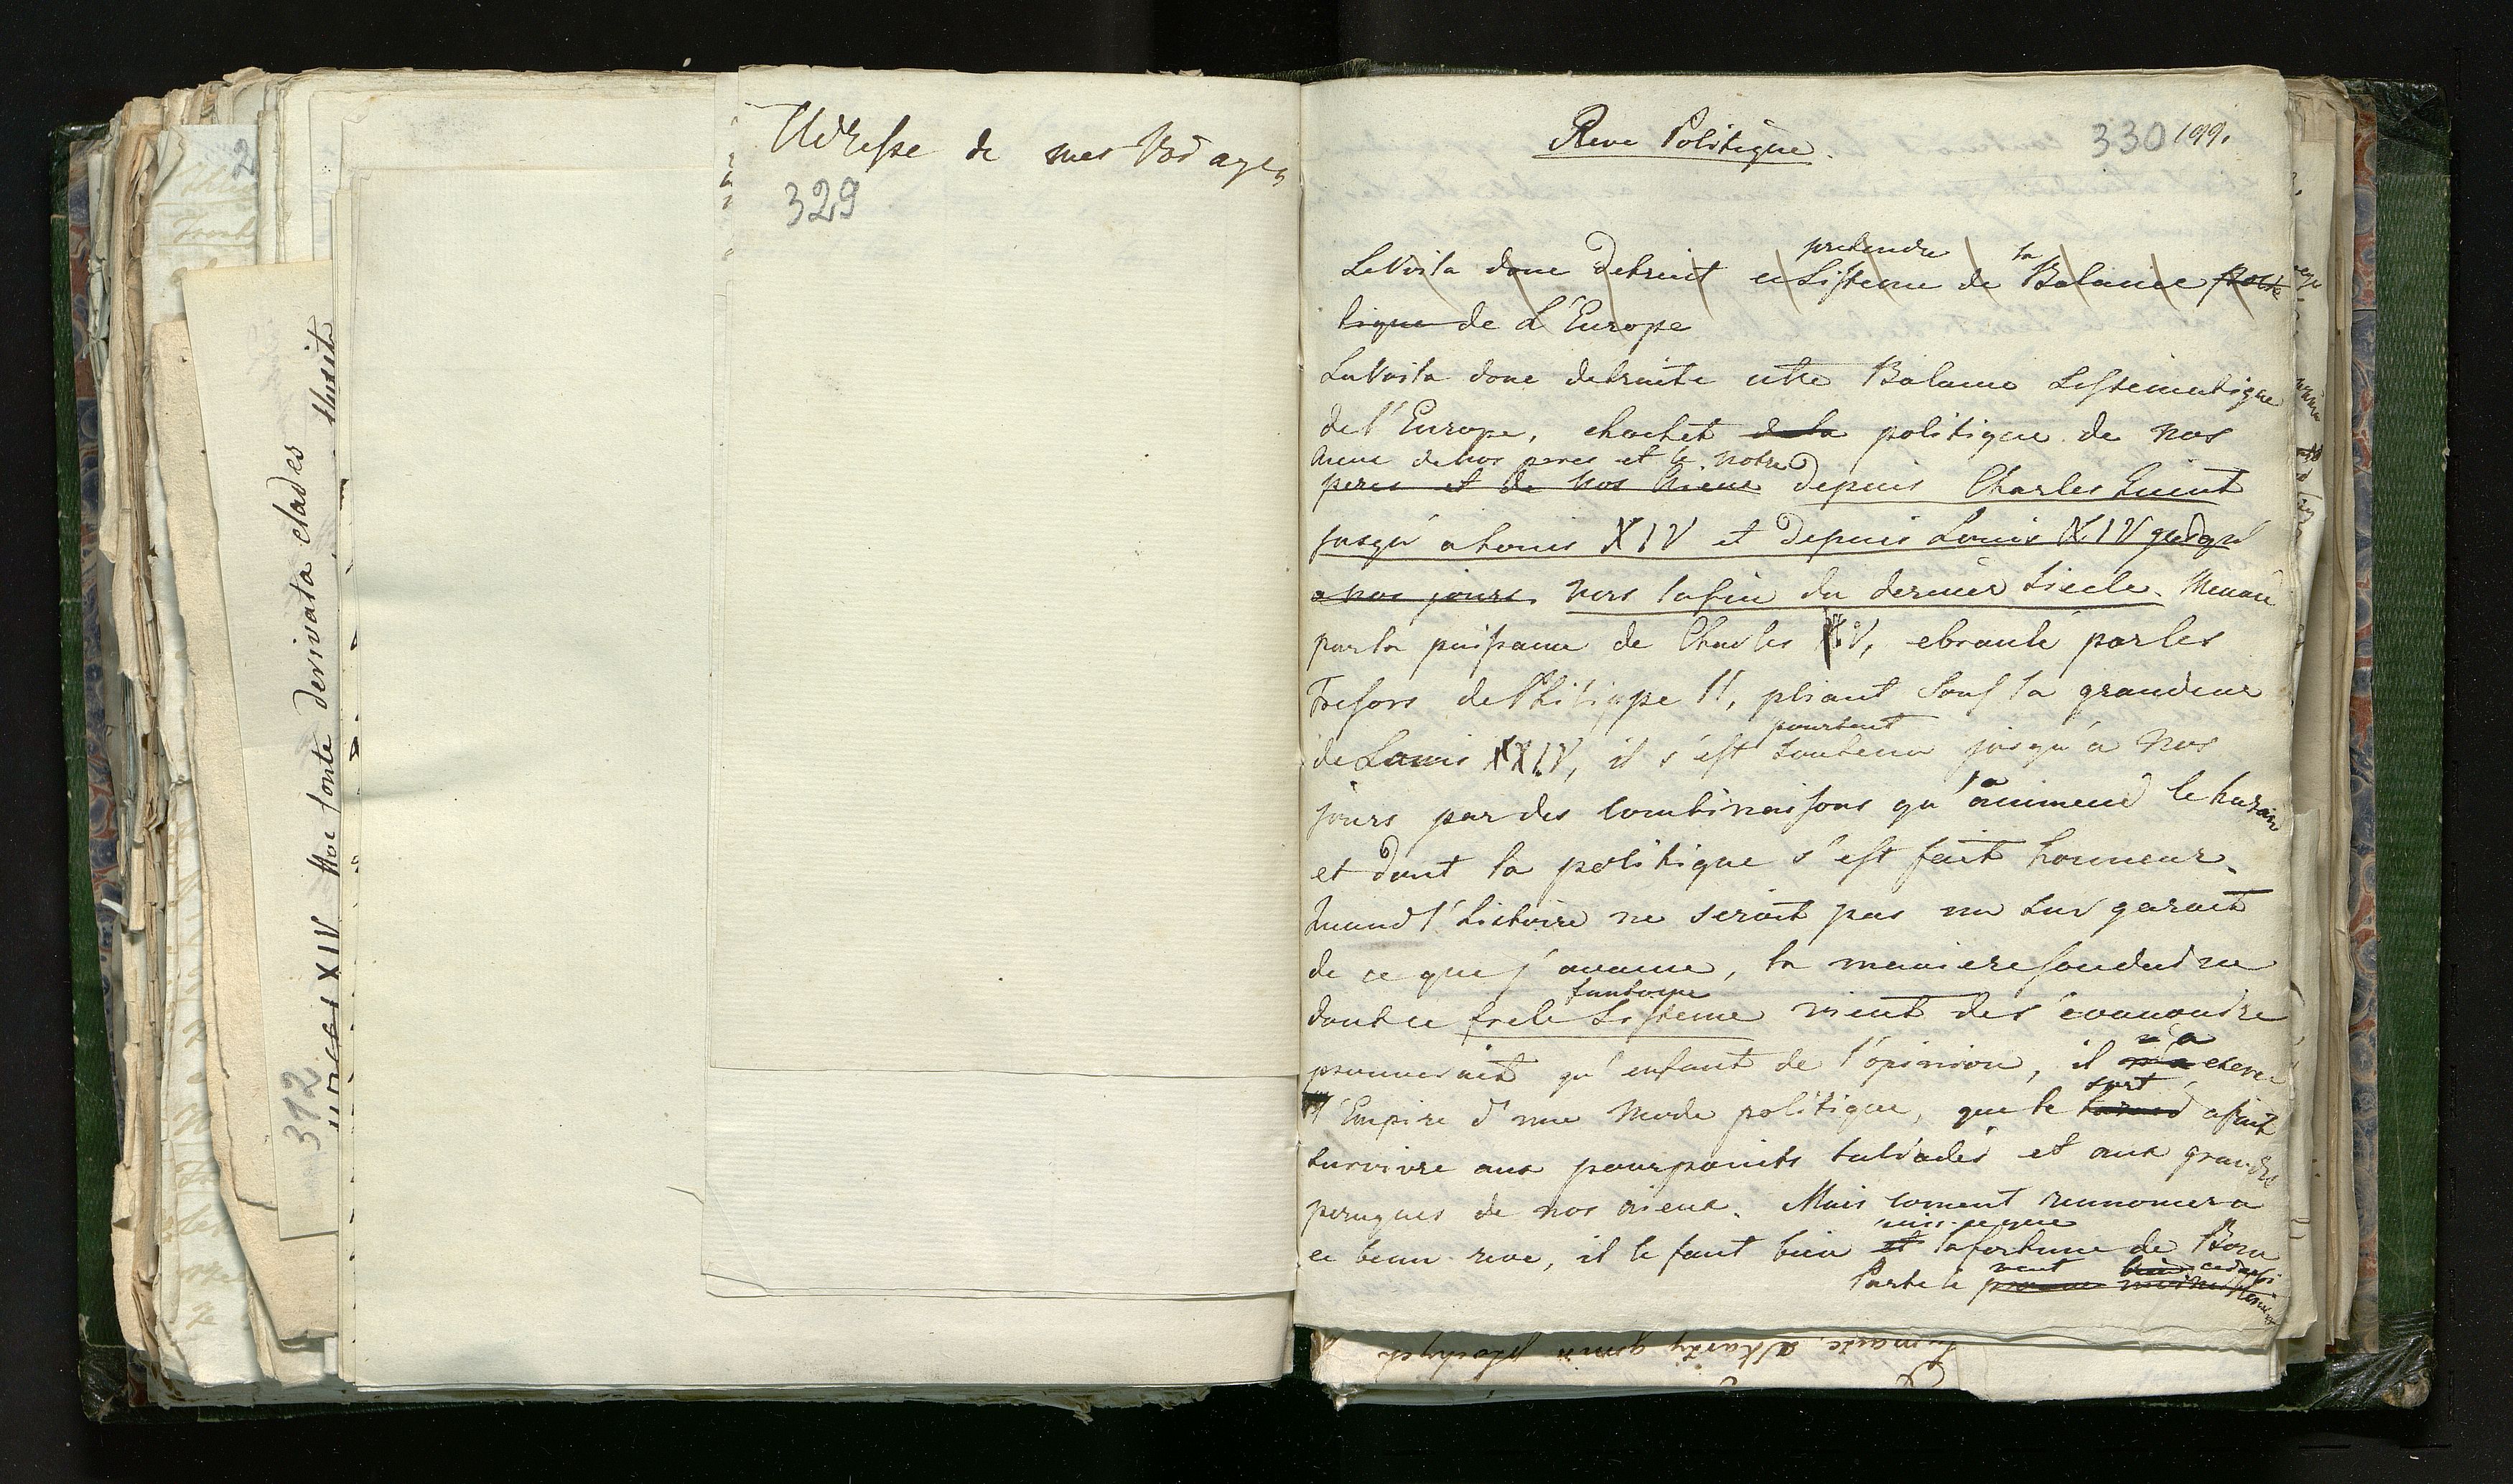 Adresse de mes Voÿages
329
312
Hoc fonte derivata clades
XIV
Reve Politique.
330 199.
pretendu la
Le Voila donc detruit ce Sisteme de Balance Poli
tique de L'Europe
La Voila donc detruite cette Balance Sistematique
de l'Europe, de la politique de nos
Aieux de nos peres et le notre
peres et de nos Aieux depuis Charles Quint
jusqu'a Louis XIV et depuis Louis XIV jusqu'
a nos jours. vers la fin du dernier Siecle. Menacé
par la puissance de Charles V, ebranlé par les
Tresors de Philippe II, pliant sous la grandeur
pourtant
de Louis XIV, il s'est soutenu jusqu'a nos
jours par des combinaisons qu'a animené le hazard
et dont la politique s'est fait honneur.
Quand l'histoire ne seroit pas un sur garant
de ce que j'avance, la maniere soudaine
fantome
dont ce frele Sisteme vient de s'evanouir
n'a
prouveroit qu'enfant de l'opinion, il n'a exercé
sort
l'Empire d'une Mode politique, que le hazard a fait
survivre aux pourpoints tailladés et aux grandes
peruques de nos aieux. Mais coment renoncer a
puis que
ce beau reve, il le faut bien et la fortune de Bona
vent
Parte le